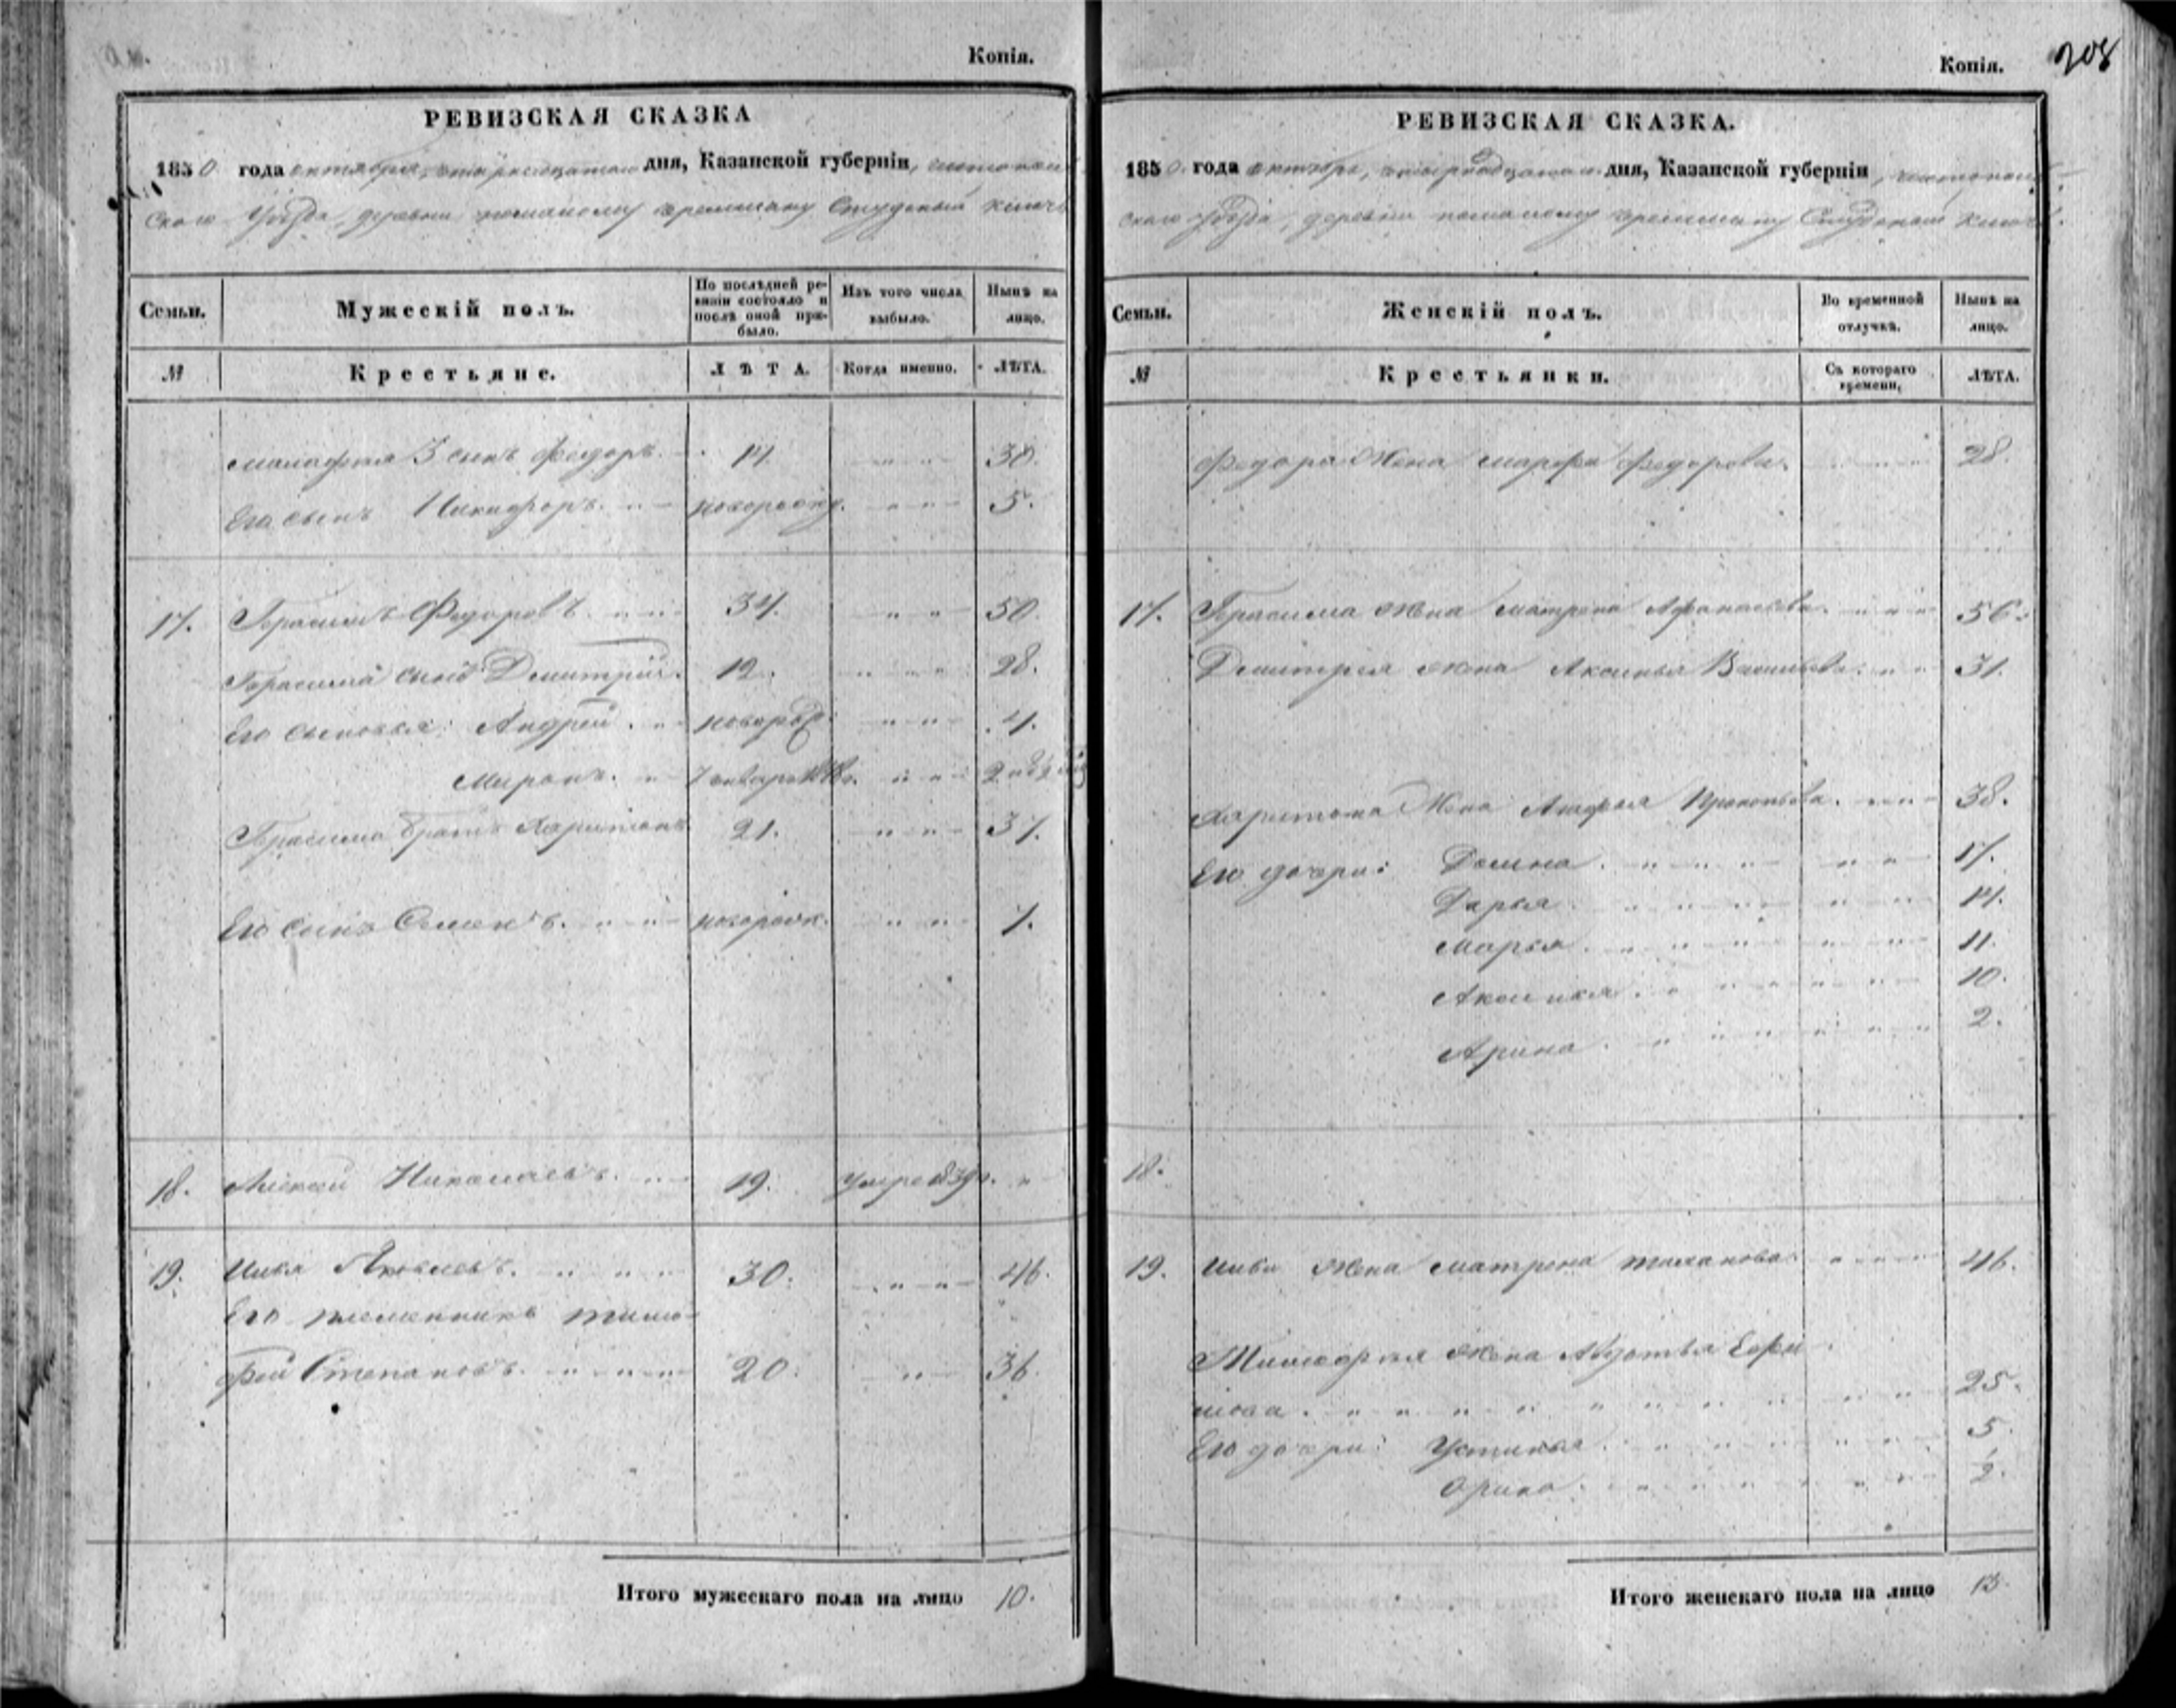 Копія.
РЕВИЗСКАЯ СКАЗКА
1850 года октября, четырнадцатаго дня, Казанской губерніи, чистополь
скаго Уѣзда, деревни помалому черемшану Студеный ключь
Семьи.
Мужескій полъ.
По послѣдней ре-
визіи состояло и
послѣ оной при-
было.
Изъ того числа
выбыло.
Нынѣ на
лицо.
№
Крестьяне.
ЛѢТА.
Когда именно.
ЛѢТА.
3 сынъ Федоръ. 14. 30.
Его сынъ Никифоръ. новорожд. 5.
17. Герасимъ Федоровъ 34. 50.
Герасима сынъ Дмитрій. 12. 28.
Его сыновья: Андрей. новорожд. 4.
Миронъ.
Герасима братъ Харитонъ 21. 37.
Его сынъ Семенъ. новорожд. 7.
18. Алексей Николаевъ. 19. умре 1839г.
19. Илья Яковлевъ. 30. 46.
Его племянникъ тимо-
фей Степановъ. 20. 36.
Итого мужескаго пола на лицо 10.
Копія.
208
РЕВИЗСКАЯ СКАЗКА.
1850 года октября, четырнадцатаго дня, Казанской губерніи, чистополь-
скаго уѣзда, деревни помалому черемшану Студеный ключь.
Семьи.
Женскій полъ.
Во временной
отлучкѣ.
Нынѣ на
лицо.
№
Крестьянки.
Съ котораго
времени.
ЛѢТА.
Федора Жена марфа Федорова. 28.
17. Герасима жена матрена Афанасьева. 56.
Дмитрея жена Аксинья Васильева. 31.
Харитона Жена Прокопьева. 38.
Его дочери: Домна. 17.
Дарья. 14.
Марья. 11.
Аксинья. 10.
Арина. 2.
18.
19. Ильи жена матрена 46.
Тимофея жена Авдотья Ефи-
мова. 25.
Его дочери: Устинья. 5.
Орина.
Итого женскаго пола на лицо 13.